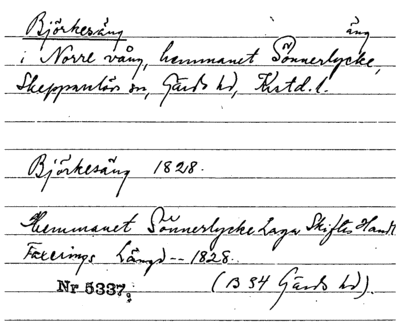 Björkesäng äng
i Norre vång, hemmanet Sönnerlycke,
Skepparslövs sn, Gärds hd, Krstd. l.
Björkesäng 1828.
Hemmanet Sönnerlycke Laga Skiftes Handl
Taxerings Längd -- 1828.
Nr 5337. (B 94 Gärds hd).